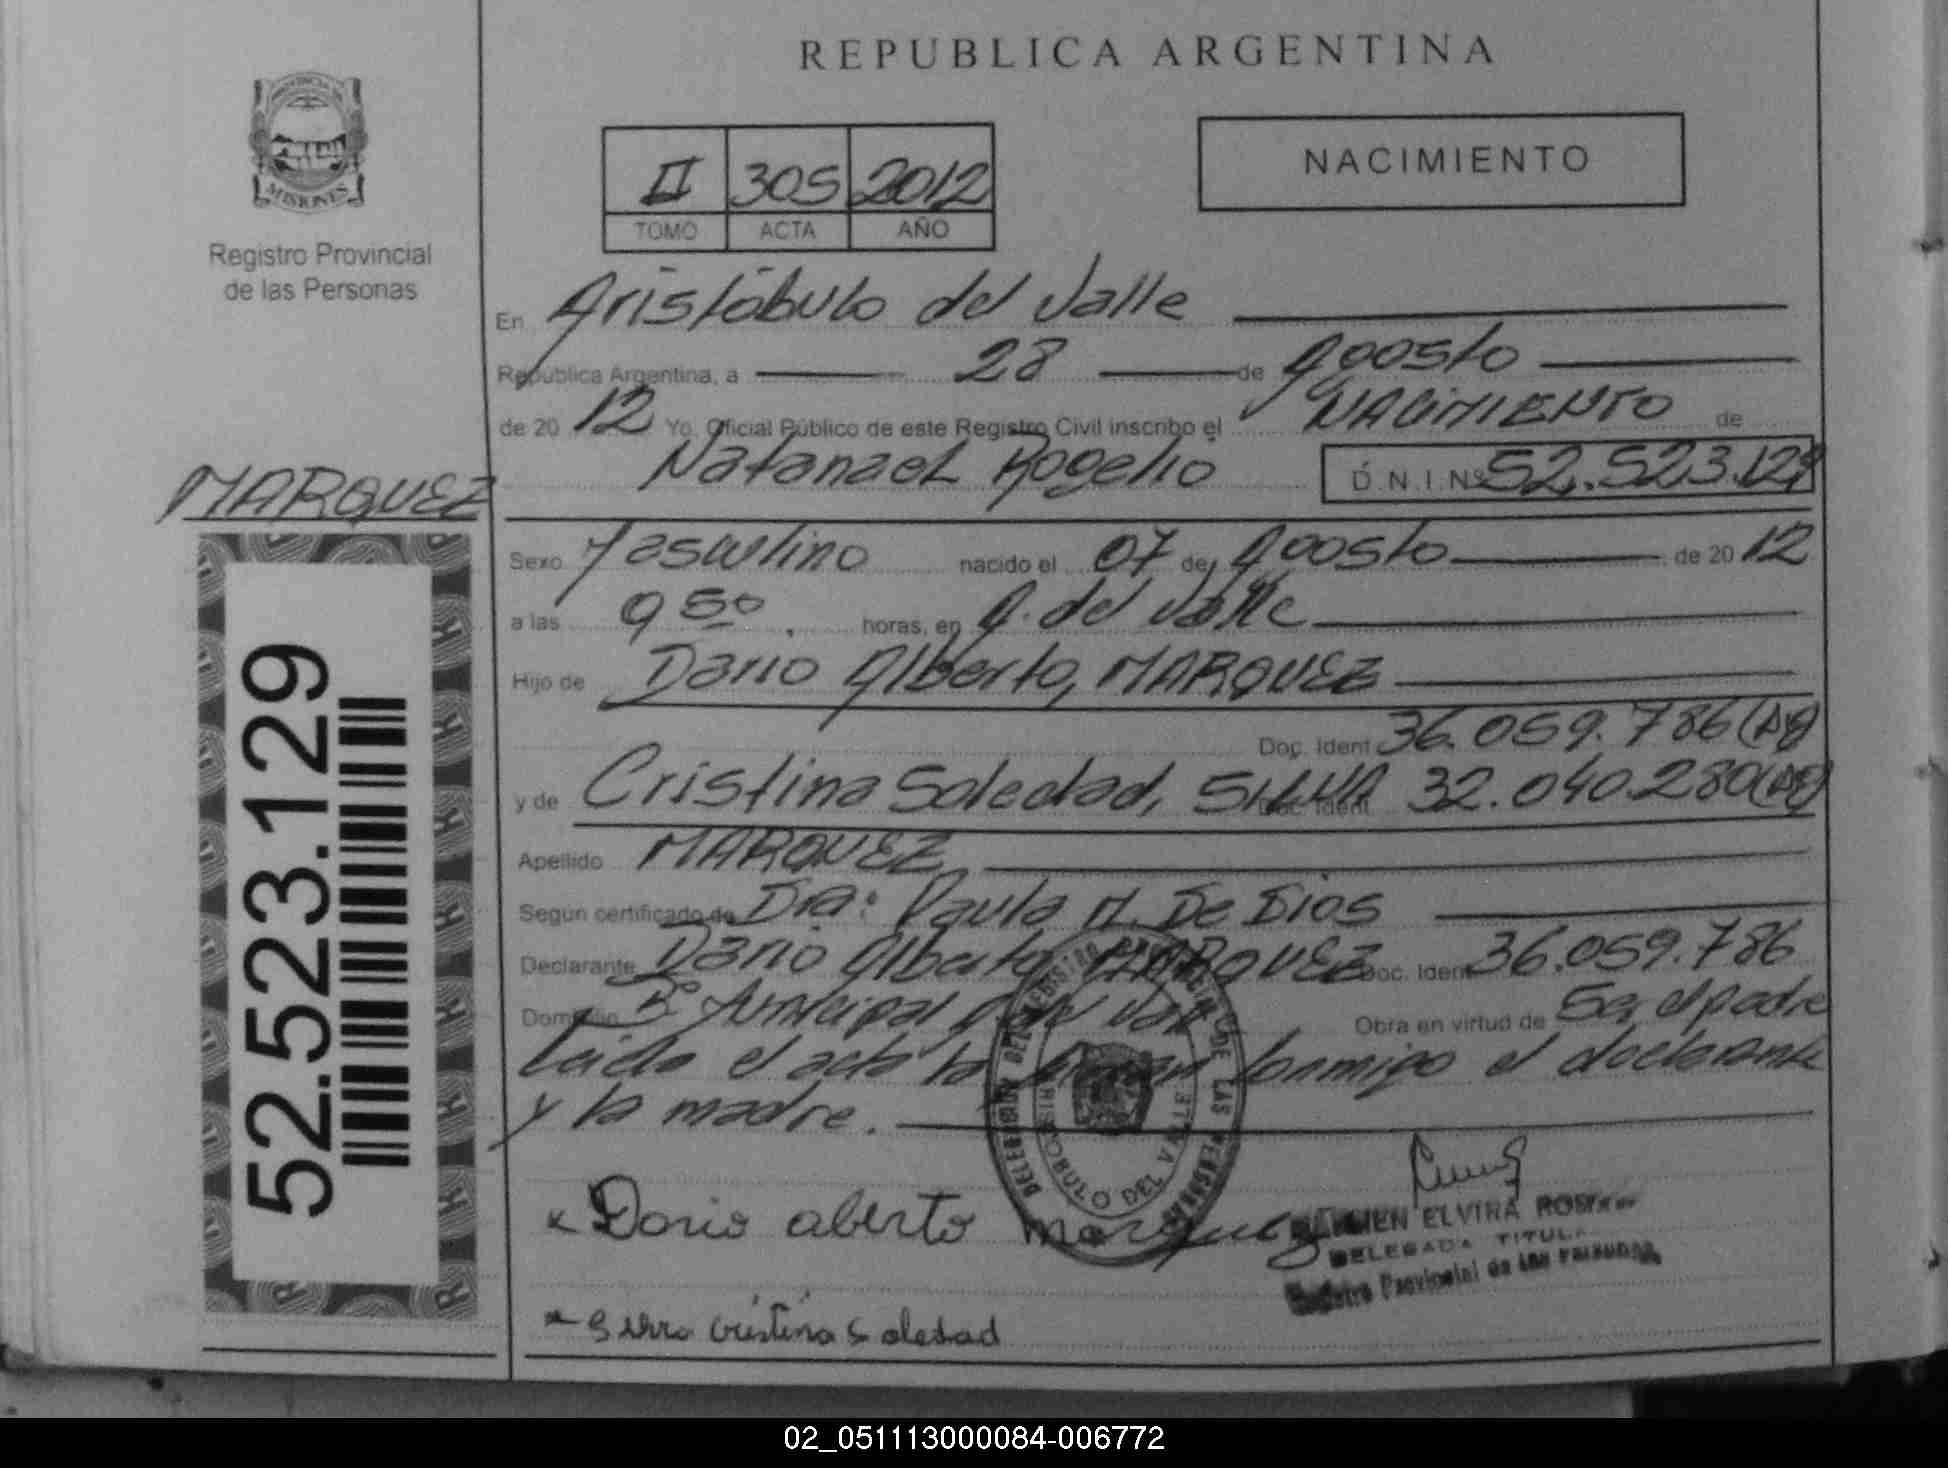 REPUBLICA ARGENTINA
MISIONES
Registro Provincial
de las Personas
II 305 2012
TOMO ACTA AÑO
NACIMIENTO
En Aristóbulo del Valle
República Argentina, a 28 de Agosto
de 20 12 Yo, Oficial Público de este Registro Civil inscribo el NACIMIENTO de
MARQUEZ
Natanael Rogelio D.N.I. Nº 52.523.129
Sexo Masculino nacido el 07 de Agosto de 20 12
a las 9 50 horas, en A. del Valle
Hijo de Dario Alberto, MARQUEZ
Doc. Ident 36.059.786 (AR)
y de Cristina Soledad, SILVA Doc. Ident. 32.040.280 (AR)
Apellido MARQUEZ
Según certificado de Dra: Paula M. De Dios
Declarante Dario Alberto MARQUEZ Doc. Ident 36.059.786
Domicilio Bº Municipal A. del Valle Obra en virtud de Ser el padre
Leída el acta la firman conmigo el declarante
y la madre.
52.523.129
DELEGACION DEL REGISTRO PROVINCIAL DE LAS PERSONAS
ARISTOBULO DEL VALLE
x Dario alberto marquez
CARMEN ELVIRA
DELEGADA TITULAR
Registro Provincial de las Personas
Cristina Soledad
02_051113000084-006772